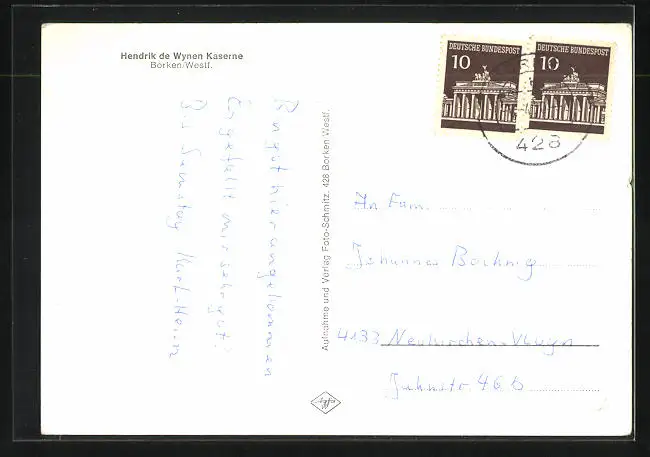 Hendrik de Wynen Kaserne
Borken/Westf.
Bin gut hier angekommen
Es gefällt mir sehr gut!
Bis Samstag Karl-Heinz
Aufnahme und Verlag Foto-Schmitz, 428 Borken Westf.
Agfa
DEUTSCHE BUNDESPOST
10
DEUTSCHE BUNDESPOST
10
428
An Fam.
Johannes
4133 Neukirchen-Vluyn
Jahnstr. 46 b